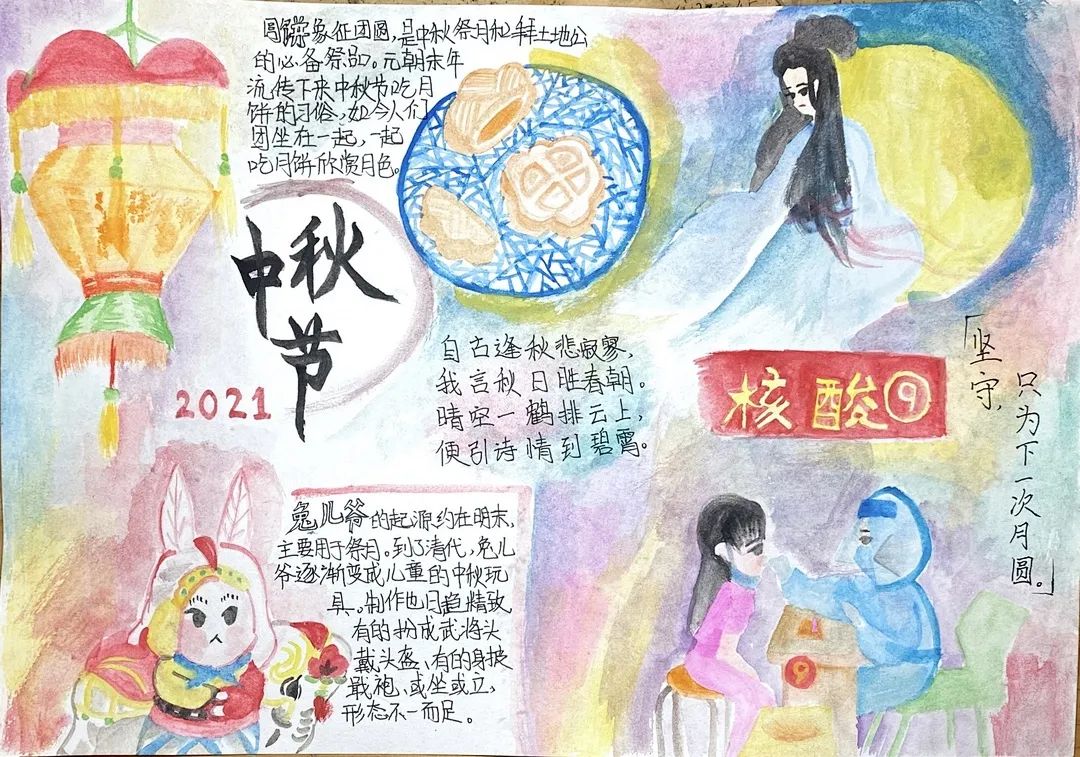 圆饼象征团圆,是中秋祭月和拜土地公
的必备祭品。元朝末年
流传下来中秋节吃月
饼的习俗,如今人们
团坐在一起,一起
吃月饼欣赏月色。
中秋节
2021
自古逢秋悲寂寥,
我言秋日胜春朝。
晴空一鹤排云上,
便引诗情到碧霄。
核酸⑨
「坚守,
只为下一次月圆。」
兔儿爷的起源约在明末,
主要用于祭月。到了清代,兔儿
爷逐渐变成儿童的中秋玩
具。制作也日趋精致
有的扮成武将头
戴头盔、有的身披
戰袍、或坐或立,
形态不一而足。
9